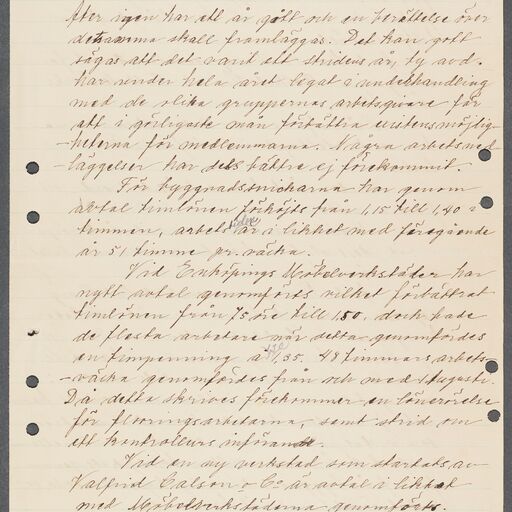 Åter igen har ett år gått och en berättelse över
detsamma skall framläggas. Det kan gott
sägas att det varit ett stridens år, ty avd.
har under hela året legat i underhandling
med de olika gruppernas arbetsgivare för
att i görligaste mån förbättra existensmöjlig-
heterna för medlemmarna. Några arbetsned-
läggelser har dess bättre ej förekommit.
För byggnadssnickarna har genom
avtal timlönen förhöjts från 1,15 till 1,40 i
timmen, arbetstiden är i likhet med föregående
år 51 timme pr. vecka.
Vid Enköpings Möbelverkstäder har
nytt avtal genomförts vilket förbättrat
timlönen från 75 öre till 1,80. dock hade
de flesta arbetare när detta genomfördes
en timpenning à 1,35. 48 timmars arbets-
vecka genomfördes från och med 1 Augusti.
Då detta skrives förekommer en lönerörelse
för flooringsarbetarna, samt strid om
ett kontrolleurs införande.
Vid en ny verkstad som startats av
Valfrid Calson & Co är avtal i likhet
med Möbelverkstäderna genomförts.